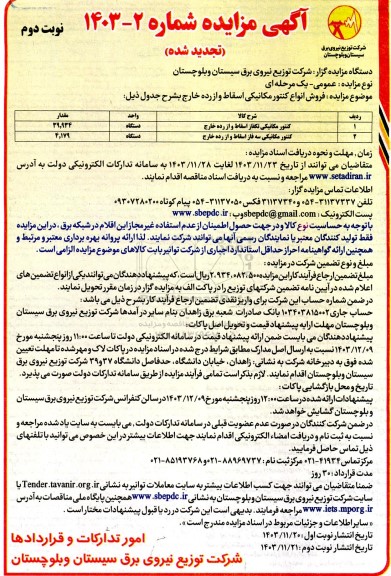 آگهی مزایده شماره ۲-۱۴۰۳
(تجدید شده)
نوبت دوم
شرکت توزیع نیروی برق
سیستان وبلوچستان
دستگاه مزایده گزار: شرکت توزیع نیروی برق سیستان وبلوچستان
نوع مزایده: عمومی- یک مرحله ای
موضوع مزایده: فروش انواع کنتور مکانیکی اسقاط و از رده خارج بشرح جدول ذیل:
ردیف شرح کالا واحد مقدار
۱ کنتور مکانیکی تکفاز اسقاط و از رده خارج دستگاه ۳۹,۹۳۴
۲ کنتور مکانیکی سه فاز اسقاط و از رده خارج دستگاه ۴,۱۷۹
زمان، مهلت و نحوه دریافت اسناد مزایده:
متقاضیان می توانند از تاریخ ۱۴۰۳/۱۱/۲۳ لغایت ۱۴۰۳/۱۱/۲۸ به سامانه تدارکات الکترونیکی دولت به آدرس
www.setadiran.ir مراجعه و نسبت به دریافت اسناد مناقصه اقدام نمایند.
اطلاعات تماس مزایده گزار:
تلفن ۳۱۱۳۷۲۳۷-۰۵۴ و ۳۱۱۳۷۳۴۰ فکس ۳۱۱۳۷۰۵۰-۰۵۴ پیام کوتاه ۰۹۳۰۷۲۸۰۲۰۰
پست الکترونیک: sbepdc@gmail.com وب: www.sbepdc.ir
با توجه به حساسیت نوع کالا و در جهت حصول اطمینان از عدم استفاده غیر مجاز این اقلام در شبکه برق، در این مزایده
فقط تولید کنندگان معتبر یا نمایندگان رسمی آنها می توانند شرکت نمایند. لذا ارائه پروانه بهره برداری معتبر و مرتبط و
همچنین ارائه گواهینامه احراز حداقل استاندارد اجباری از شرکت توانیر بابت کالاهای موضوع مزایده الزامی است.
مبلغ و نوع تضمین شرکت در مزایده:
مبلغ تضمین ارجاع فرآیند کار این مزایده ۲.۹۳۴.۰۸۲.۵۰۰ ریال است، که پیشنهاددهندگان می توانند یکی از انواع تضمین های
اعلام شده در آیین نامه تضمین شرکتهای توزیع را در پاکت الف به مزایده گزار در زمان مقرر تحویل نمایند.
در ضمن شماره حساب این شرکت برای واریز نقدی تضمین ارجاع فرآیند کار بشرح ذیل می باشد:
حساب جاری ۱۰۳۴۰۳۸۱۵۰۰۲ بانک صادرات شعبه برق زاهدان بنام سایر در آمدها شرکت توزیع نیروی برق سیستان
وبلوچستان مهلت ارایه پیشنهاد قیمت و تحویل اصل پاکات:
پیشنهاد دهندگان می بایست ضمن ارائه پیشنهاد قیمت در سامانه الکترونیکی دولت تا ساعت ۱۱:۰۰ روز پنجشنبه مورخ
۱۴۰۳/۱۲/۰۹ نسبت به ارسال اصل مدارک مطابق شرایط درج شده در اسناد مزایده در پاکات لاک و مهر شده تا مهلت تعیین
شده فوق به دبیرخانه شرکت به نشانی: زاهدان، خیابان دانشگاه، حدفاصل دانشگاه ۳۷ و ۳۹ شرکت توزیع نیروی برق
سیستان وبلوچستان اقدام نمایند. لازم بذکر است تمامی فرآیند مزایده از طریق سامانه تدارکات دولت صورت می پذیرد.
تاریخ و محل بازگشایی پاکات:
پیشنهادات ارائه شده در ساعت ۱۲:۰۰ روز پنجشنبه مورخ ۱۴۰۳/۱۲/۰۹ در سالن کنفرانس شرکت توزیع نیروی برق سیستان
و بلوچستان گشایش خواهد شد.
در ضمن شرکت کنندگان در صورت عدم عضویت قبلی در سامانه تدارکات دولت، می بایست به سایت یاد شده مراجعه و
نسبت به ثبت نام و دریافت امضاء الکترونیکی اقدام نمایند جهت اطلاعات بیشتر در این خصوص می توانید با تلفنهای
ذیل تماس حاصل فرمایید.
مرکز تماس ۴۱۹۳۴-۰۲۱ مرکز ثبت نام: ۸۸۹۶۹۷۳۷-۰۲۱ و ۸۵۱۹۳۷۶۸-۰۲۱
مدت قرارداد: ۳۰ روز
ضمنا متقاضیان می توانند جهت کسب اطلاعات بیشتر به سایت معاملات توانیر به نشانی Tender.tavanir.org.ir یا
سایت شرکت توزیع نیروی برق سیستان و بلوچستان به نشانی www.sbepdc.ir همچنین پایگاه ملی مناقصات به آدرس
www.iets.mporg.ir مراجعه فرمایند. بدیهی است این شرکت در رد یا قبول پیشنهادات مختار است.
« سایر اطلاعات و جزئیات مربوط در اسناد مزایده مندرج است »
تاریخ انتشار نوبت اول: ۱۴۰۳/۱۱/۲۰
تاریخ انتشار نوبت دوم: ۱۴۰۳/۱۱/۲۱
امور تدارکات و قراردادها
شرکت توزیع نیروی برق سیستان وبلوچستان